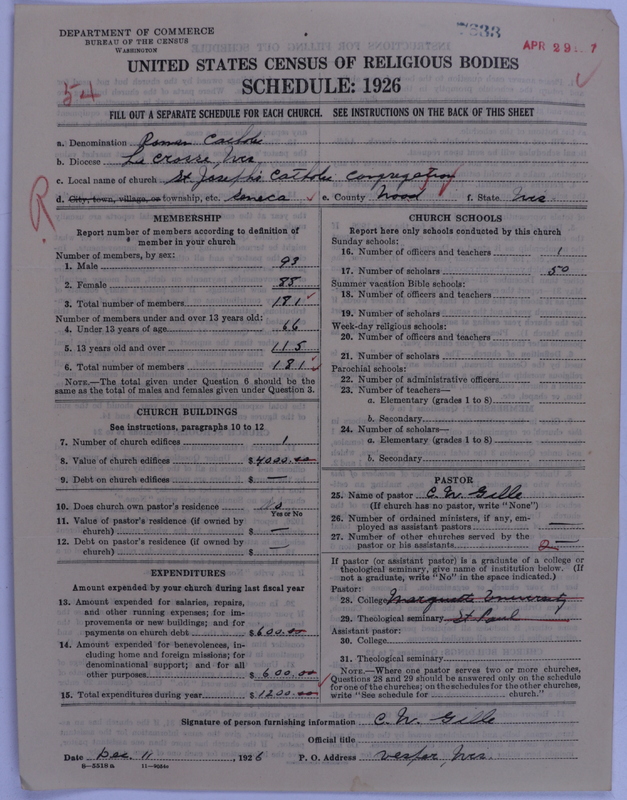 DEPARTMENT OF COMMERCE
BUREAU OF THE CENSUS
WASHINGTON
7633
APR 29 7
UNITED STATES CENSUS OF RELIGIOUS BODIES
SCHEDULE: 1926
54
FILL OUT A SEPARATE SCHEDULE FOR EACH CHURCH. SEE INSTRUCTIONS ON THE BACK OF THIS SHEET
a. Denomination Roman Catholic
b. Diocese La Crosse, Wis
c. Local name of church St Joseph's Catholic Congregation
d. City, town, village, or township, etc. Seneca e. County Wood f. State Wis
R
MEMBERSHIP
Report number of members according to definition of
member in your church
Number of members, by sex:
1. Male 93
2. Female 88
3. Total number of members 181
Number of members under and over 13 years old:
4. Under 13 years of age 66
5. 13 years old and over 115
6. Total number of members 181
NOTE.—The total given under Question 6 should be
same as the total of males and females given under Question 3.
CHURCH BUILDINGS
See instructions, paragraphs 10 to 12
7. Number of church edifices 1
8. Value of church edifices $ 4000.00
9. Debt on church edifices $ —
10. Does church own pastor's residence No
Yes or No
11. Value of pastor's residence (if owned by
church) $ —
12. Debt on pastor's residence (if owned by
church) $ —
EXPENDITURES
Amount expended by your church during last fiscal year
13. Amount expended for salaries, repairs,
and other running expenses; for im-
provements or new buildings; and for
payments on church debt $ 600.00
14. Amount expended for benevolences, in-
cluding home and foreign missions; for
denominational support; and for all
other purposes $ 600.00
15. Total expenditures during year $ 1200.00
CHURCH SCHOOLS
Report here only schools conducted by this church
Sunday schools:
16. Number of officers and teachers 1
17. Number of scholars 50
Summer vacation Bible schools:
18. Number of officers and teachers
19. Number of scholars
Week-day religious schools:
20. Number of officers and teachers
21. Number of scholars
Parochial schools:
22. Number of administrative officers
23. Number of teachers—
a. Elementary (grades 1 to 8)
b. Secondary
24. Number of scholars—
a. Elementary (grades 1 to 8)
b. Secondary
PASTOR
25. Name of pastor C. W. Gille
(If church has no pastor, write "None")
26. Number of ordained ministers, if any, em-
ployed as assistant pastors —
27. Number of other churches served by the
pastor or his assistants 2 —
If pastor (or assistant pastor) is a graduate of a college or
theological seminary, give name of institution below. (If
not a graduate, write "No" in the space indicated.)
Pastor:
28. College Marquette University
29. Theological seminary St Paul
Assistant pastor:
30. College
31. Theological seminary
NOTE.—Where one pastor serves two or more churches,
Questions 28 and 29 should be answered only on the schedule
for one of the churches; on the schedules for the other churches,
write "See schedule for church."
Signature of person furnishing information C. W. Gille
Official title
Date Dec. 11, 1926 P. O. Address Vesper, Wis.